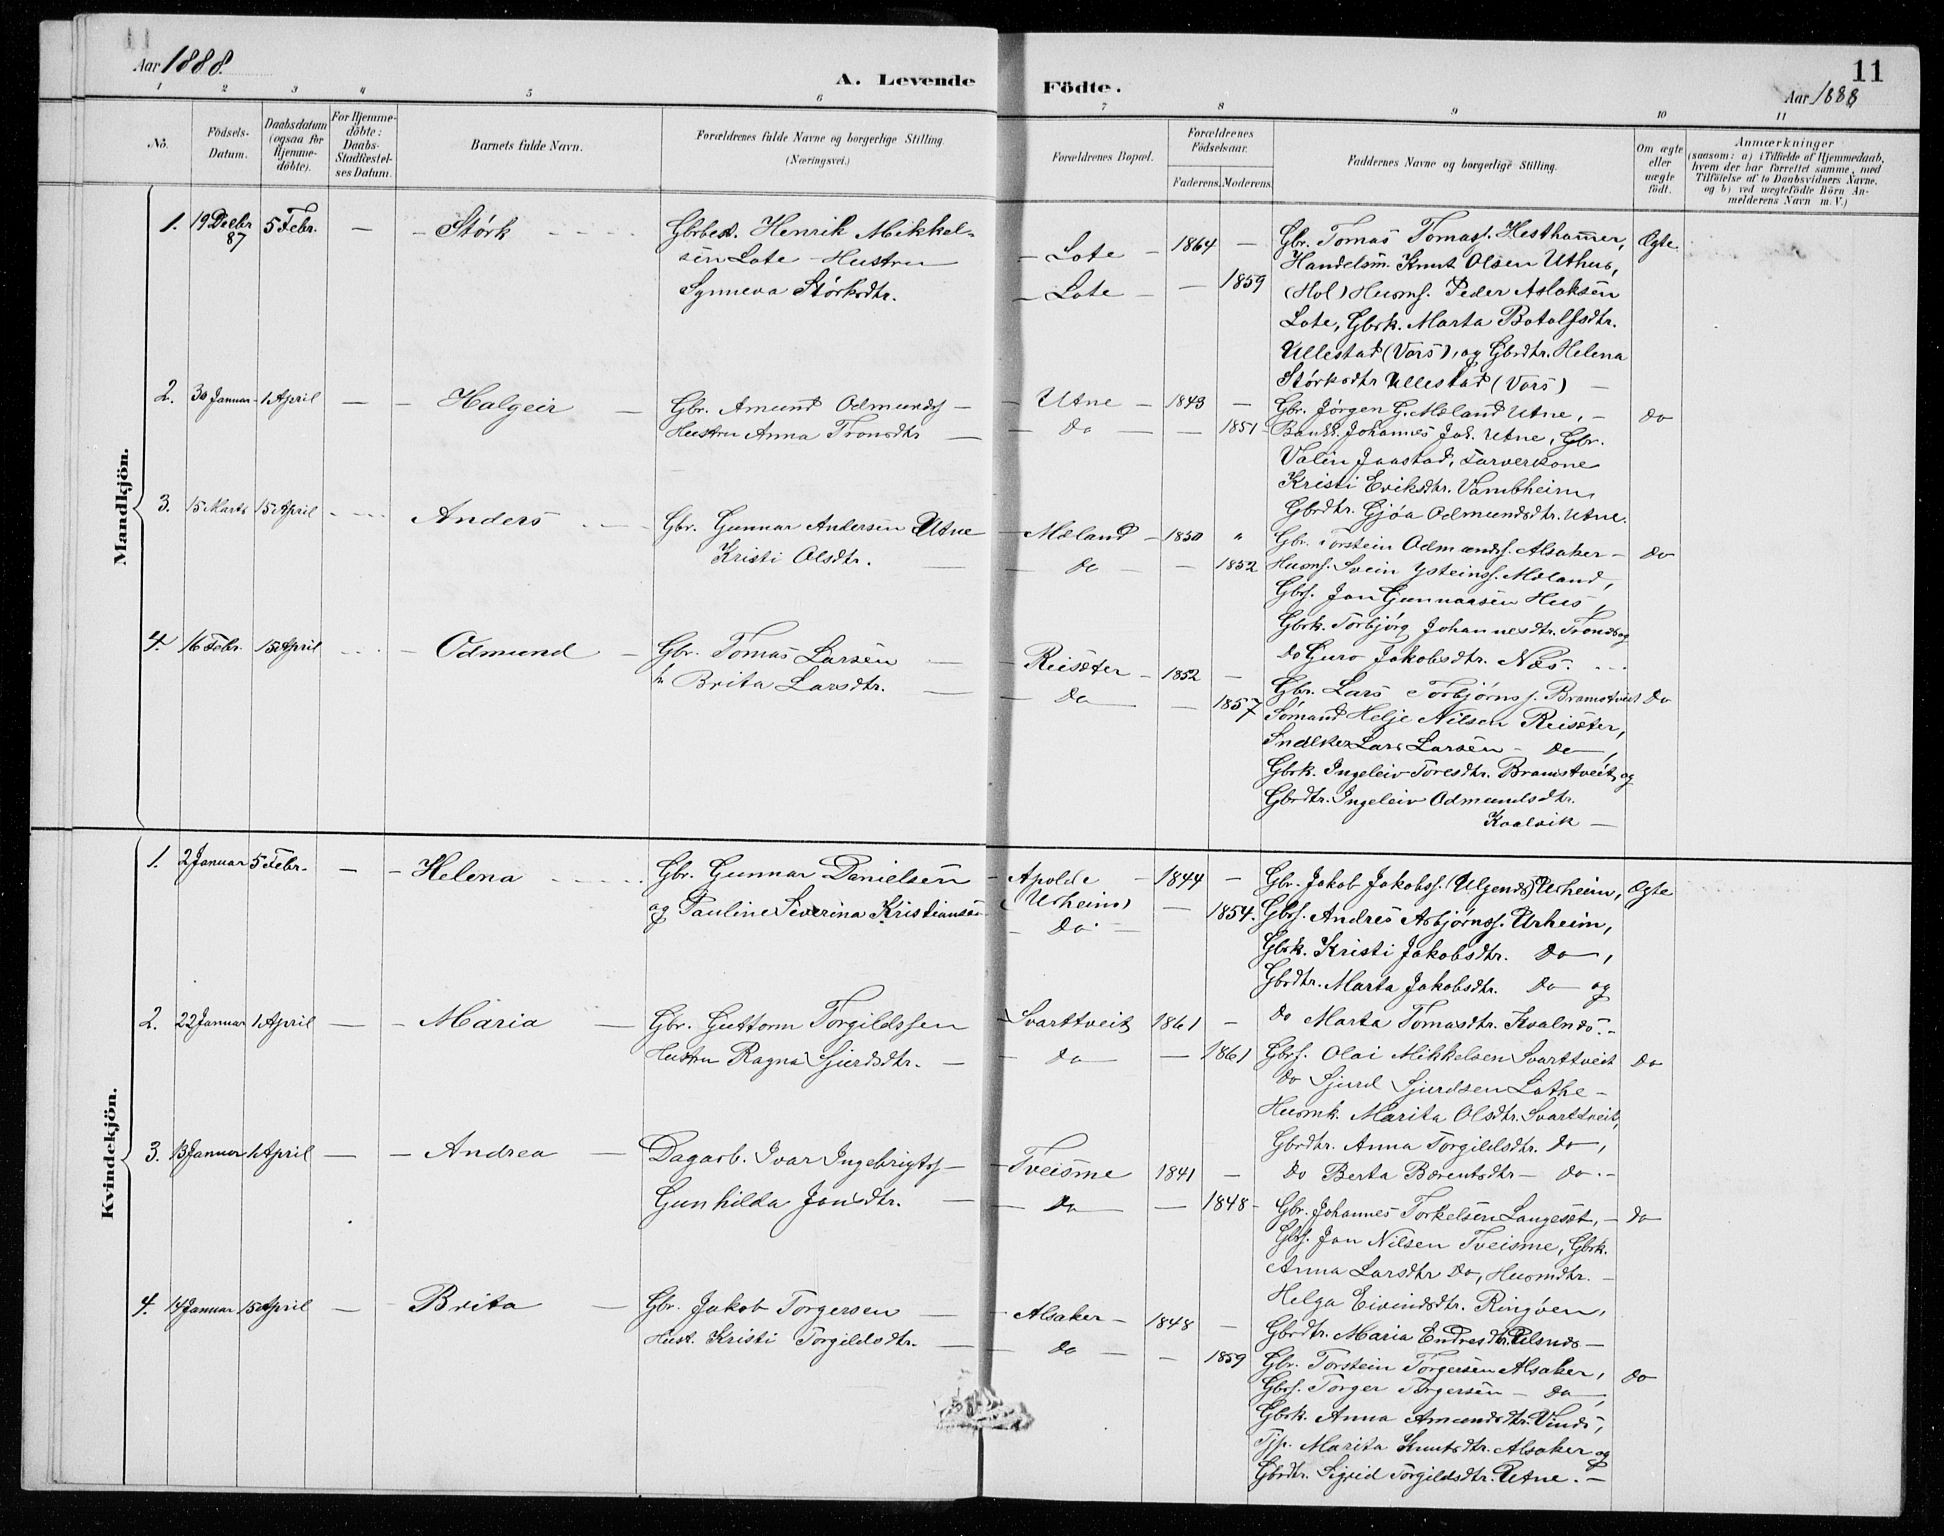 11
Aar 1888.
A. Levende
Födte.
Aar 1888
1 2 3 4 5 6 7 8 9 10 11
No.
Födsels-Datum.
Daabsdatum (ogsaa for Hjemme-döbte).
For Hjemme-döbte: Daabs-Stadfæstel-ses Datum.
Barnets fulde Navn.
Forældrenes fulde Navne og borgerlige Stilling (Næringsvei.)
Forældrenes Bopæl.
Forældrenes Födselsaar.
Faderens. Moderens.
Faddernes Navne og borgerlige Stilling.
Om ægte eller uægte födt.
Anmærkninger
(saasom: a) i Tilfælde af Hjemmedaab,
hvem der har forrettet samme, med
Tilföielse af to Daabsvidners Navne.
og b) ved uegtefödte Börn An-
melderens Navn m. V.)
Mandkjön.
1. 19 Decbr 87 5 Febr. — - Störk
Gbrbest. Henrik Mikkel-
sen Lote - Hustru
Synneva Störksdtr.
- Lote - 1864 —
- Lote - — 1859
Gbr. Tomas Tomass. Hesthammer, Ægte
Handelsm. Knut Olsen Uthus,
(Hol) Husms. Peder Aslaksen
Lote, Gbrk. Marta Botolfsdtr.
Ullestad (Vors), og Gbrdtr. Helena
Störksdtr Ullestad (Vors) —
2. 30 Januar 1 April — - Halgeir —
Gbr. Amund Odmunds -
Hustru Anna Tronsdtr —
- Utne - 1843 —
- Do — — 1851
Gbr. Jörgen G. Mæland Utne, - Do
Johannes Joh. Utne, Gbr.
Valin Jaastad, Farverkone
Kristi Eriksdtr. Vambheim,
Gbrdtr. Gjöa Odmundsdtr. Utne.
3. 15 Marts 15 April - Anders
Gbr. Gunnar Andersen Utne
Kristi Olsdtr. —
- Mæland - 1850 "
- Do - — 1852
Gbr. Torstein Odmunds. Alsaker - Do
Husms. Svein Ysteins. Mæland,
Gbrs. Jon Gunnarsen Hus,
Gbrk. Torbjörg Johannesdtr. Tronds og
Do Guro Jakobsdtr. Næs.
4. 16 Febr. 15 April - Odmund -
Gbr. Tomas Larsen —
h Brita Larsdtr. —
- Reisæter - 1852 —
- Do — — 1857
Gbr. Lars Torbjörns. Bramstveit Do
Sömand Helje Nilsen Reisæter,
Snedker Lars Larsen - Do,
Gbrk. Ingeleiv Toresdtr. Bramstveit, og
Gbrdtr. Ingeleiv Odmundsdtr.
Kvalvik —
Kvindekjön.
1. 2 Januar 5 Febr. — - Helena
Gbr. Gunnar Danielsen
og Pauline Severina Kristians
- Apolde - 1844 —
(Urheim) — 1854.
- Do. -
Gbr. Jakob Jakobs. (Ulgends) Urheim, Ægte
Gbrs. Andres Asbjörns. Urheim,
Gbrk. Kristi Jakobsdtr. Do,
Gbrdtr. Marta Jakobsdtr. Do og
Do Marta Tomasdtr. Kvalnæs. -
2. 22 Januar 1 April — - Maria —
Gbr. Guttorm Torgildssen
Hustru Ragna Sjursdtr. -
- Svarttveit 1861 -
- Do — — 1861
Gbrs. Olai Mikkelsen Svarttveit Do
Do Sjurd Sjurdsen Lothe -
Husmk. Marita Olsdtr. Svarttveit,
Gbrdtr. Anna Torgildsdtr. Do,
Do Berta Börentsdtr - Do. -
3. 13 Januar 1 April — - Andrea —
Dagarb. Ivar Ingebrigts -
Gunhilda Jonsdtr. —
- Tveisme 1841 -
- Do — — 1848 -
Gbr. Johannes Torkelsen Langesæt, - Do
Gbrs. Jon Nilsen Tveisme, Gbrk.
Anna Larsdtr Do, Husmdtr. -
Helga Eivindsdtr. Ringöen,
Gbrdtr. Maria Endresdtr. —
4. 14 Januar 15 April — - Brita —
Gbr. Jakob Torgersen —
Hust. Kristi Torgildsdtr. —
- Alsaker - 1848 —
- Do — — 1859
Gbr. Torstein Torgersen Alsaker, Do
Gbrs. Torger Torgersen - Do,
Gbrk. Anna Amundsdtr. Vinds,
Tjp. Marita Knutsdtr. Alsaker og
Gbrdtr. Sigrid Torgildsdtr. Utne. -